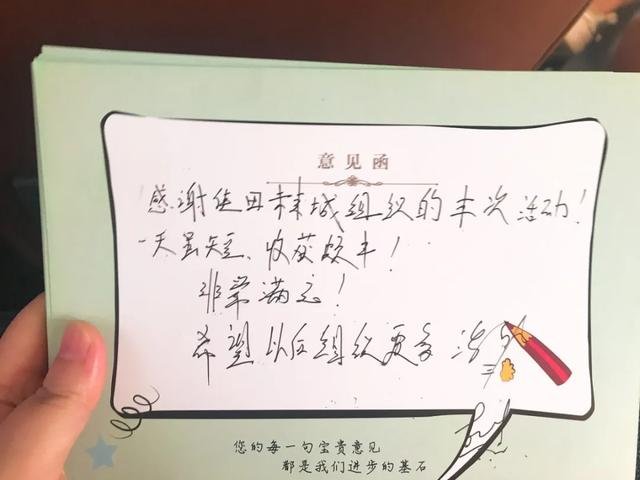 意见函
感谢佳田未来城组织的本次活动!
一天虽短、收获颇丰!
非常满意!
希望以后组织更多活动
您的每一句宝贵意见
都是我们进步的基石